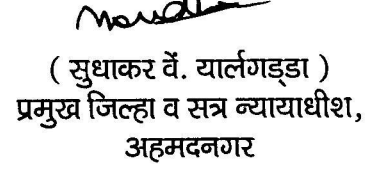 ( सुधाकर वें. यार्लगड्डा )
प्रमुख जिल्हा व सत्र न्यायाधीश,
अहमदनगर